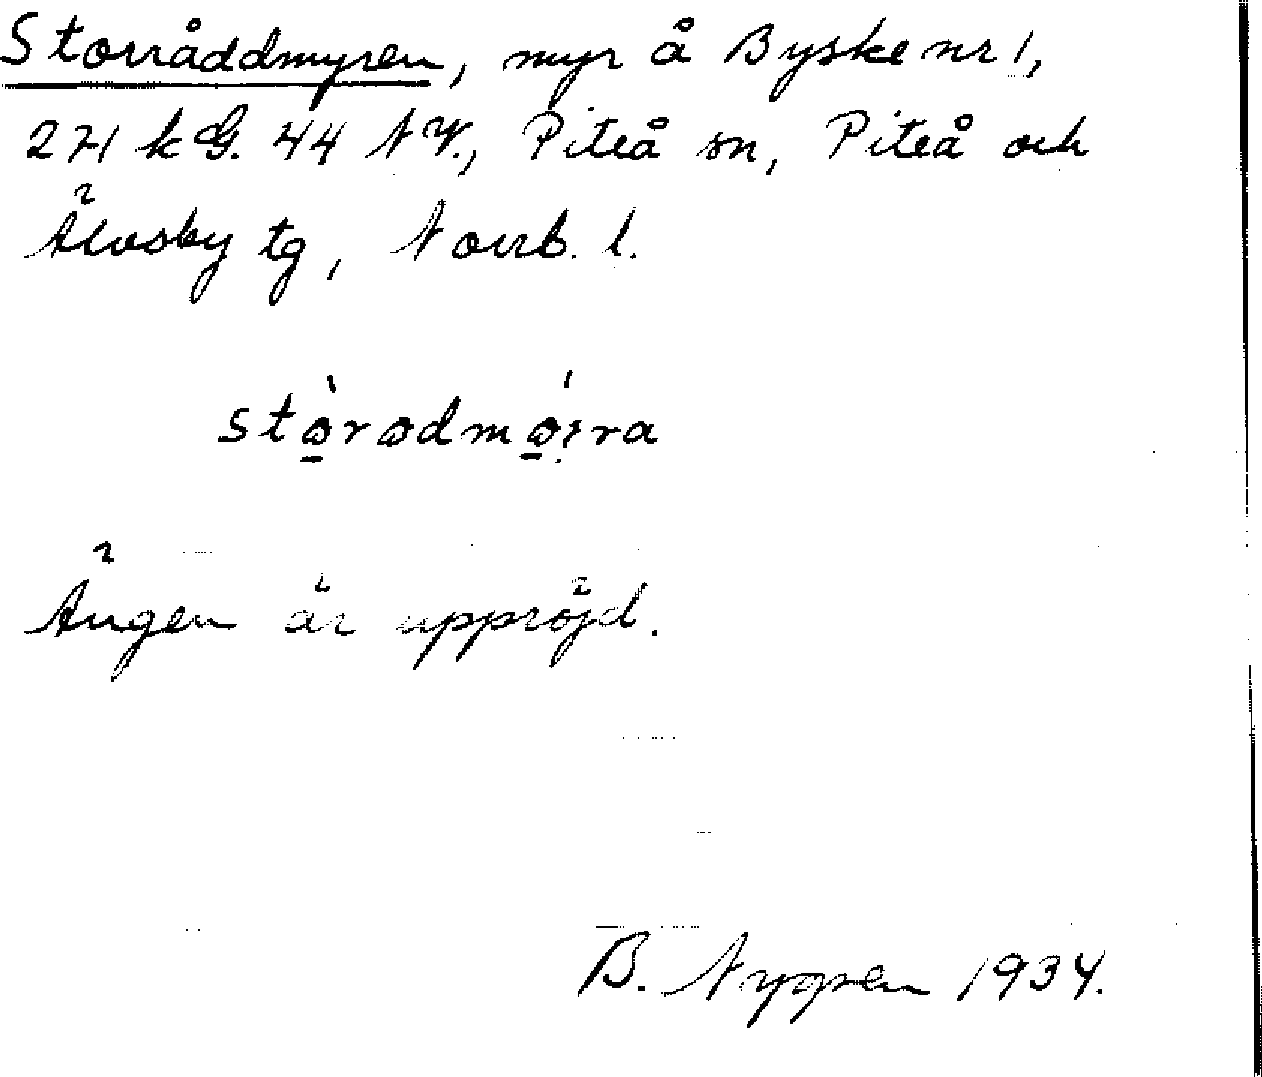 Storråddmyren, myr å Byske nr 1,
271 kG. 44 NV., Piteå sn, Piteå och
Älvsby tg, Norrb. l.
Ängen är uppröjd.
B. Nygren 1934.